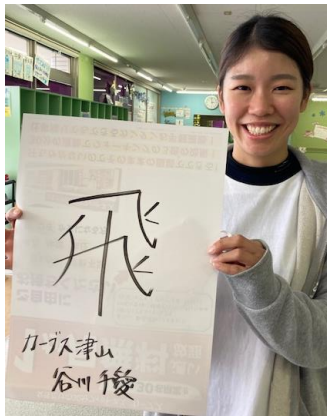 飛
カーブス津山
谷川 千愛